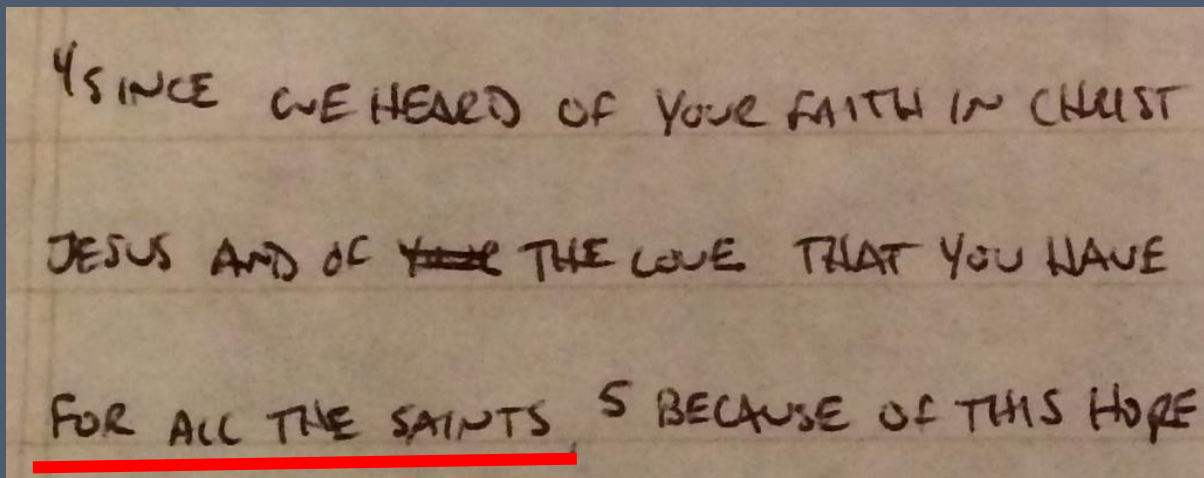 4 SINCE WE HEARD OF YOUR FAITH IN CHRIST
JESUS AND OF THE LOVE THAT YOU HAVE
FOR ALL THE SAINTS, 5 BECAUSE OF THIS HOPE